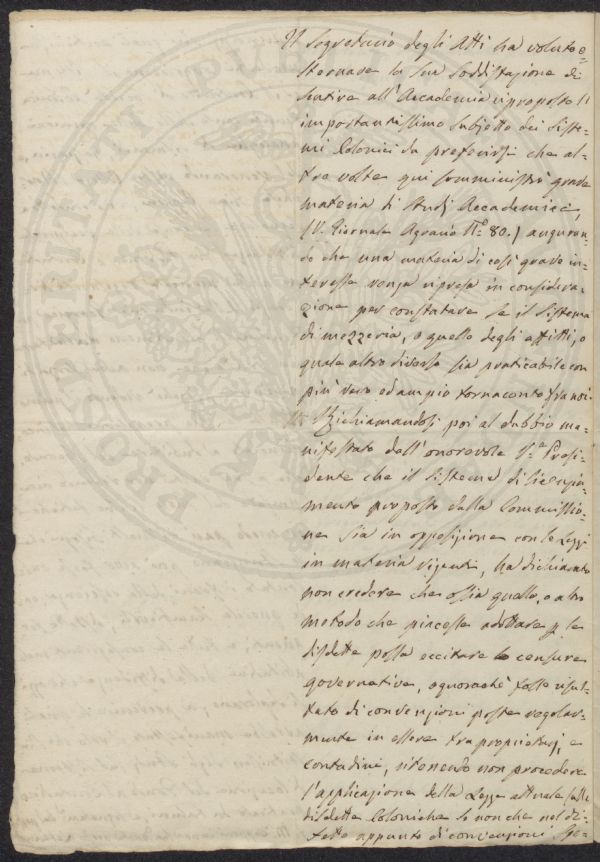 Il Segretario degli Atti ha voluto e=
sternare la sua soddisfazione di
sentire all'Accademia riproposto l'
importantissimo subjetto dei Siste=
mi Colonici da preferirsi che al=
tre volte qui somministrò grave
materia di Studj Accademici,
(V. Giornale Agrario N.° 80.) auguran=
do che una materia di così grave in=
teresse venga ripresa in considera=
zione per constatare se il Sistema
di mezzeria, o quello degli affitti, o
quale altro diverso sia praticabile con
più vero ed ampio tornaconto fra noi.
Richiamandosi poi al dubbio ma=
nifestato dall'onorevole S.r Presi=
dente che il Sistema di
mento proposto dalla Commissio=
ne sia in opposizione con le Leggi
in materia vigenti, ha dichiarato
non credere che ossia quello, o altro
metodo che piacesse adottare p le
disdette possa eccitare le censure
governative, ognorachè fosse risul=
tato di convenzioni poste regolar=
mente in essere tra proprietarj, e
contadini, ritenendo non procedere
l'applicazione della Legge attuale sulle
disdette Coloniche se non che nel di=
fetto appunto di convenzioni Spe=